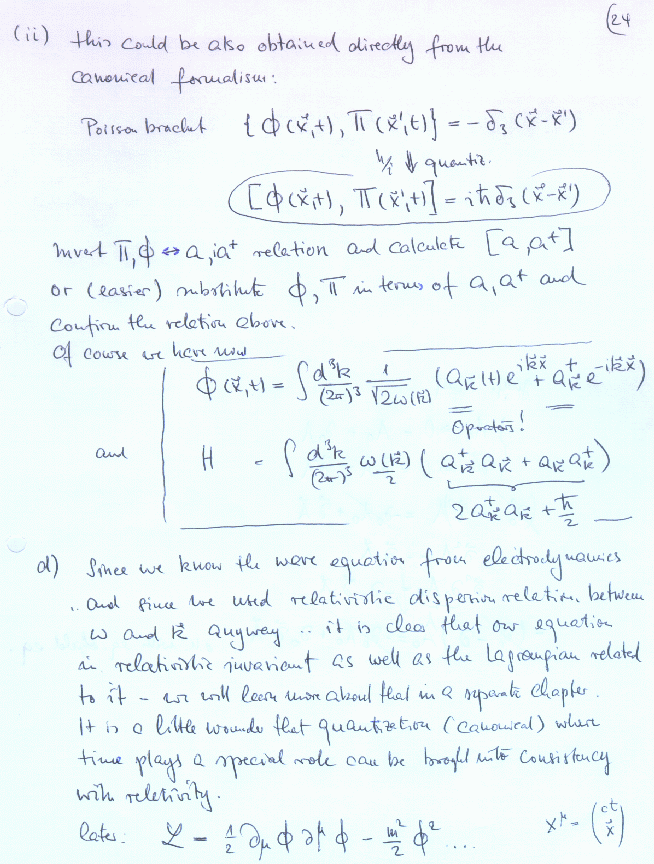 24
(ii) this could be also obtained directly from the
canonical formalism:
Poisson bracket { ϕ(x⃗,t), Π(x⃗',t)} = - δ₃(x⃗-x⃗')
ħ/i ⇓ quantiz.
[ϕ(x⃗,t), Π(x⃗',t)] = iħδ₃(x⃗-x⃗')
Invert Π,ϕ ↔ a,a⁺ relation and calculate [a,a⁺]
or (easier) substitute ϕ,Π in terms of a,a⁺ and
confirm the relation above.
Of course we have now
ϕ(x⃗,t) = ∫ d³k/(2π)³ 1/√2ω(k⃗) (a_k⃗(t) e^{ik⃗x⃗} + a⁺_k⃗ e^{-ik⃗x⃗})
Operators!
and H = ∫ d³k/(2π)³ ω(k⃗)/2 (a⁺_k⃗ a_k⃗ + a_k⃗ a⁺_k⃗)
2a⁺_k⃗ a_k⃗ + ħ/2
d) Since we know the wave equation from electrodynamics
.. and since we used relativistic dispersion relation between
ω and k⃗ anyway .. it is clear that our equation
is relativistic invariant as well as the Lagrangian related
to it - we will learn more about that in a separate chapter.
It is a little wounder that quantization (canonical) where
time plays a special role can be broght into consistency
with reletivity.
later: ℒ = 1/2 ∂_μ ϕ ∂^μ ϕ - m²/2 ϕ² .... x^μ = (ct x⃗)